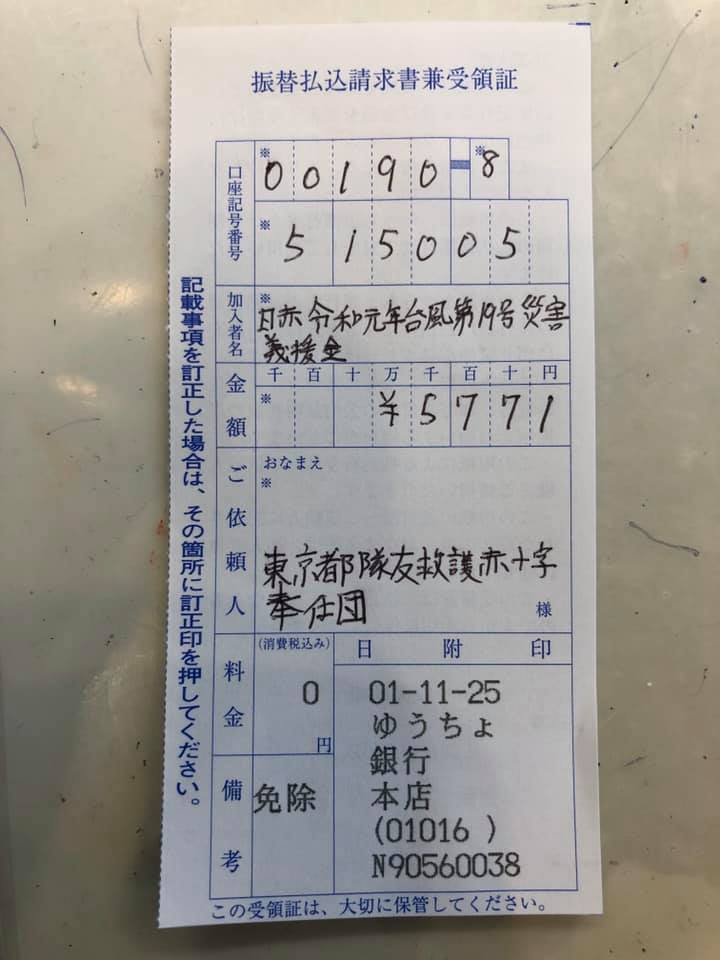 振替払込請求書兼受領証
口座記号番号
※ 00190-※8
※ 515005
加入者名
※ 日赤令和元年台風第19号災害
義援金
金額
千百十万千百十円
※ ¥5771
ご依頼人
おなまえ
※
東京都隊友救護赤十字
奉仕団
様
料金
(消費税込み)
0
円
備考
免除
日附印
01-11-25
ゆうちょ
銀行
本店
(01016 )
N90560038
記載事項を訂正した場合は、その箇所に訂正印を押してください。
この受領証は、大切に保管してください。